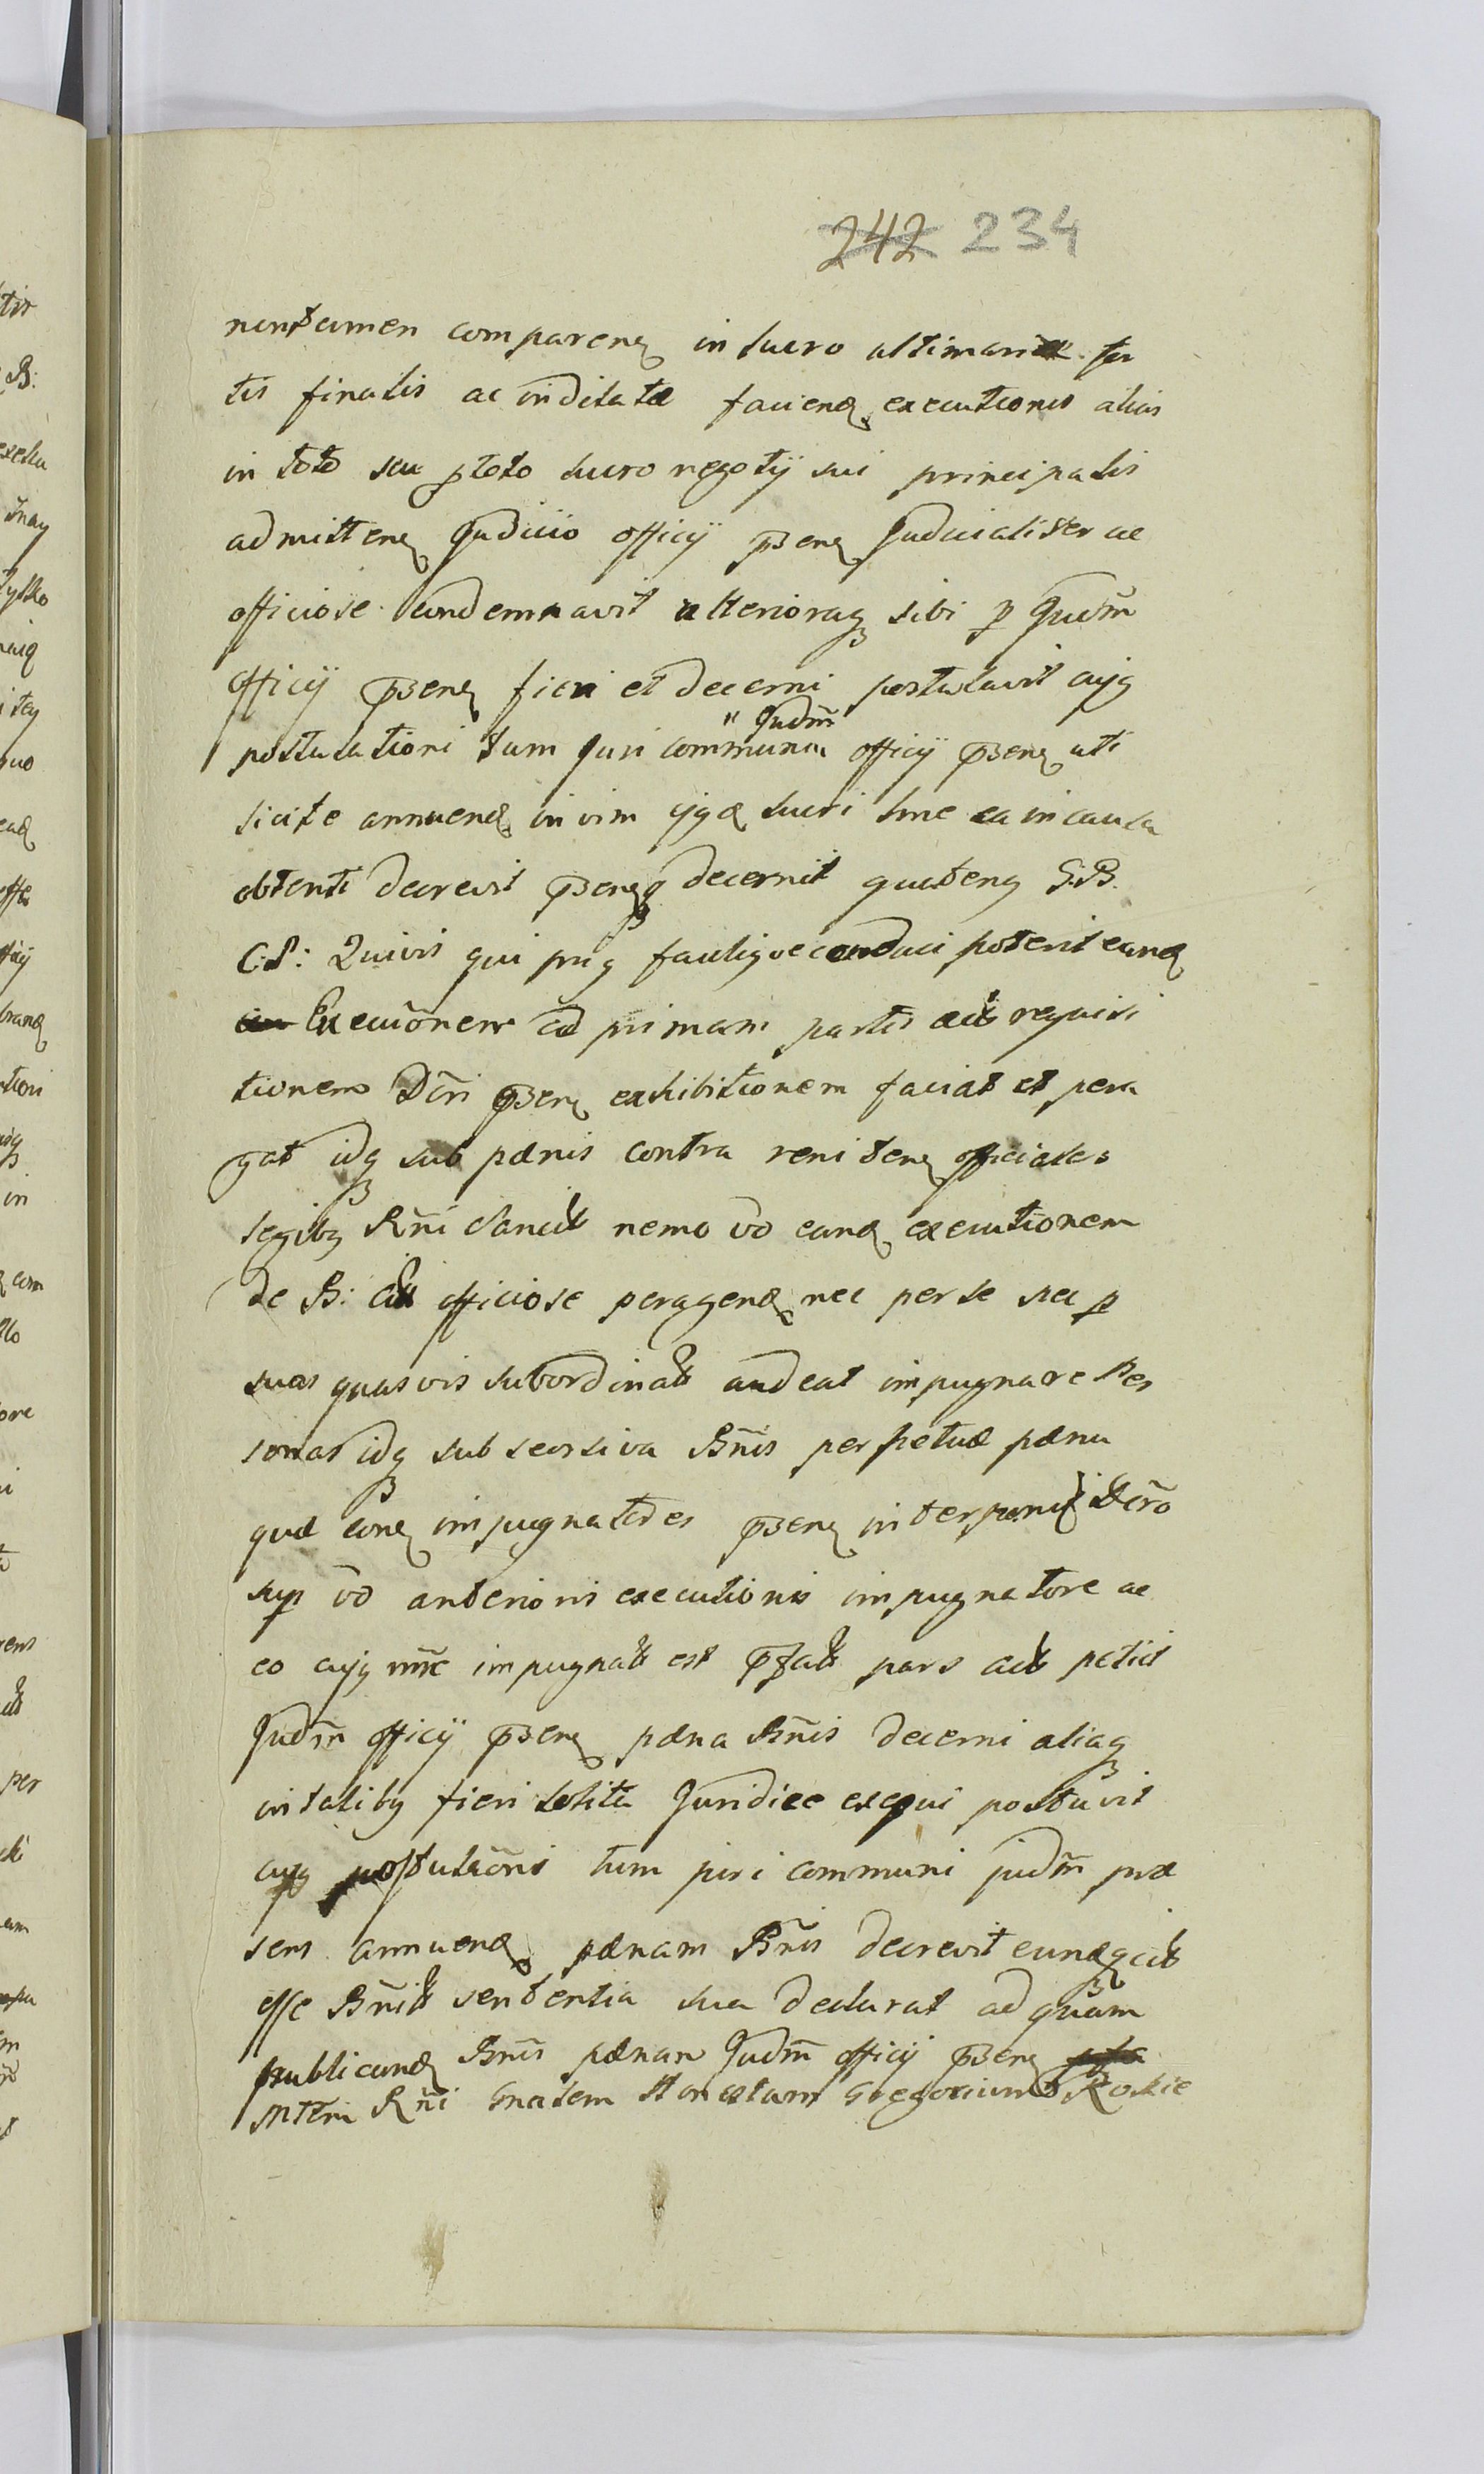 242 234
nontamen comparen in lucro ultimariæ par
tis finalis ac indilatæ faciend executionis alias
in toto seu ptoto lucro negotij sui principalis
admitten Judicio officij psen Judicialiter ac
officiose condemnavit ulterioraq sibi p Judm
officij psen fieri et decerni postulavit cujq
postulationi tum Juri communi Judm officij psen uti
licite annuend in vim ejqd lucri hne ea in causa
obtenti decrevit psenq decernit quateng G.B.
C.P: Quivis qui prig faciligve conduci poterit eand
Executionem ad primam partis act requisi
tionem Dcri psen exhibitionem faciat et pera
gat idq sub pænis contra reniten officiales
legibg Rni sancit nemo vo eand executionem
de B: act officiose peragend nec per se nec p
suas quasvis subordinat audeat impugnare Per
sonas idq sub secrsiva Bnis perpetuæ pæna
quæ eone impugnatores psen interponit Dcro
sup vo anterioris executionis impugnatore ac
eo cujq nne impugnat est pfat pars act petiit
Judm officij psen pæna Bnis decerni aliaq
in talibg fieri solita Juridice exequi postuvit
cujq postulaõni tum juri communi judm præ
sens annuend pænam Bnis decrevit eundqcit
esse Bnit sententia sua declarat ad quam
publicand Bnis pænam Judm officij psen
Mtern Rni Gnalem Honestum Gregorium Roskie